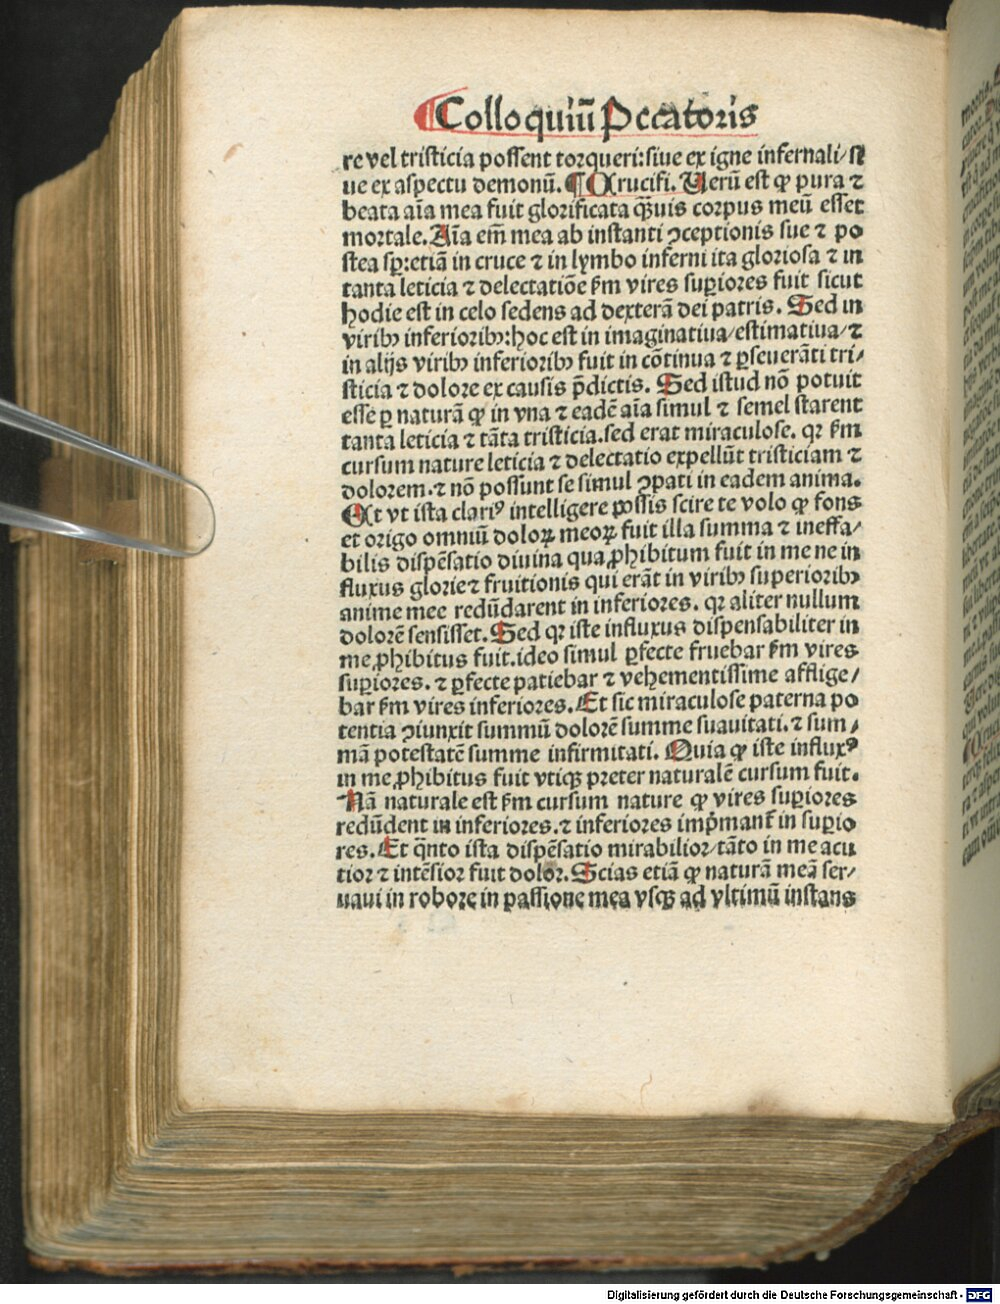 Colloquiū Pccatoris
re vel tristicia possent torqueri:siue ex igne infernali/si
ue ex aspectu demonū. ¶ Crucifi. Uerū est ꝙ pura ⁊
beata aīa mea fuit glorificata qͣ̄uis corpus meū esset
mortale. Aīa em̄ mea ab instanti ꝯceptionis sue ⁊ po
stea sp̄:etiā in cruce ⁊ in lymbo inferni ita gloriosa ⁊ in
tanta leticia ⁊ delectatiōe ẜm vires suꝑiores fuit sicut
hodie est in celo sedens ad dexterā dei patris. Sed in
viribꝰ inferioribꝰ:hoc est in imaginatiua/estimatiua/⁊
in alijs viribꝰ inferioribꝰ fuit in cōtinua ⁊ ꝑseuerāti tri/
sticia ⁊ dolore ex causis p̄dictis. Sed istud nō potuit
esse ꝑ naturā ꝙ in vna ⁊ eadē aīa simul ⁊ semel starent
tanta leticia ⁊ tāta tristicia.sed erat miraculose. qꝛ ẜm
cursum nature leticia ⁊ delectatio expellūt tristiciam ⁊
dolorem.⁊ nō possunt se simul ꝯpati in eadem anima.
Et vt ista clariꝰ intelligere possis scire te volo ꝙ fons
et origo omniū doloꝝ meoꝝ fuit illa summa ⁊ ineffa/
bilis dispēsatio diuina qua ꝓhibitum fuit in me ne in
fluxus glorie ⁊ fruitionis qui erāt in viribꝰ superioribꝰ
anime mee redūdarent in inferiores. qꝛ aliter nullum
dolorē sensisset. Sed qꝛ iste influxus dispensabiliter in
me ꝓhibitus fuit.ideo simul ꝑfecte fruebar ẜm vires
suꝑiores. ⁊ ꝑfecte patiebar ⁊ vehementissime afflige/
bar ẜm vires inferiores. Et sic miraculose paterna po
tentia ꝯiunxit summū dolorē summe suauitati. ⁊ sum/
mā potestatē summe infirmitati. Quia ꝙ iste influxꝰ
in me ꝓhibitus fuit vtiqꝫ preter naturalē cursum fuit.
Nā naturale est ẜm cursum nature ꝙ vires suꝑiores
redūdent in inferiores.⁊ inferiores imp̄mant̄ in suꝑio
res. Et q̄nto ista dispēsatio mirabilior/tāto in me acu
tior ⁊ intēsior fuit dolor. Scias etiā ꝙ naturā meā ser/
uaui in robore in passione mea vsqꝫ ad vltimū instans
Digitalisierung gefördert durch die Deutsche Forschungsgemeinschaft - DFG